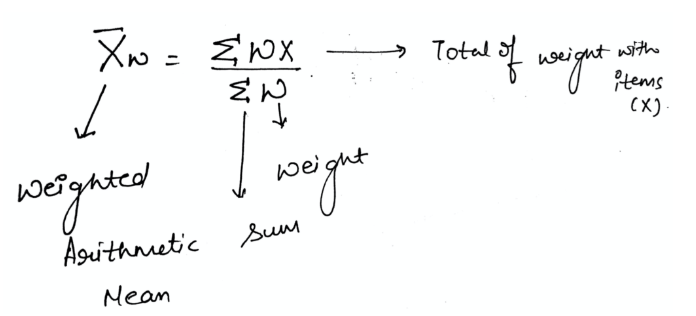 X̄w = ΣWX / ΣW → Total of weight with items (X).
weight
Weighted
Arithmetic
Mean
sum